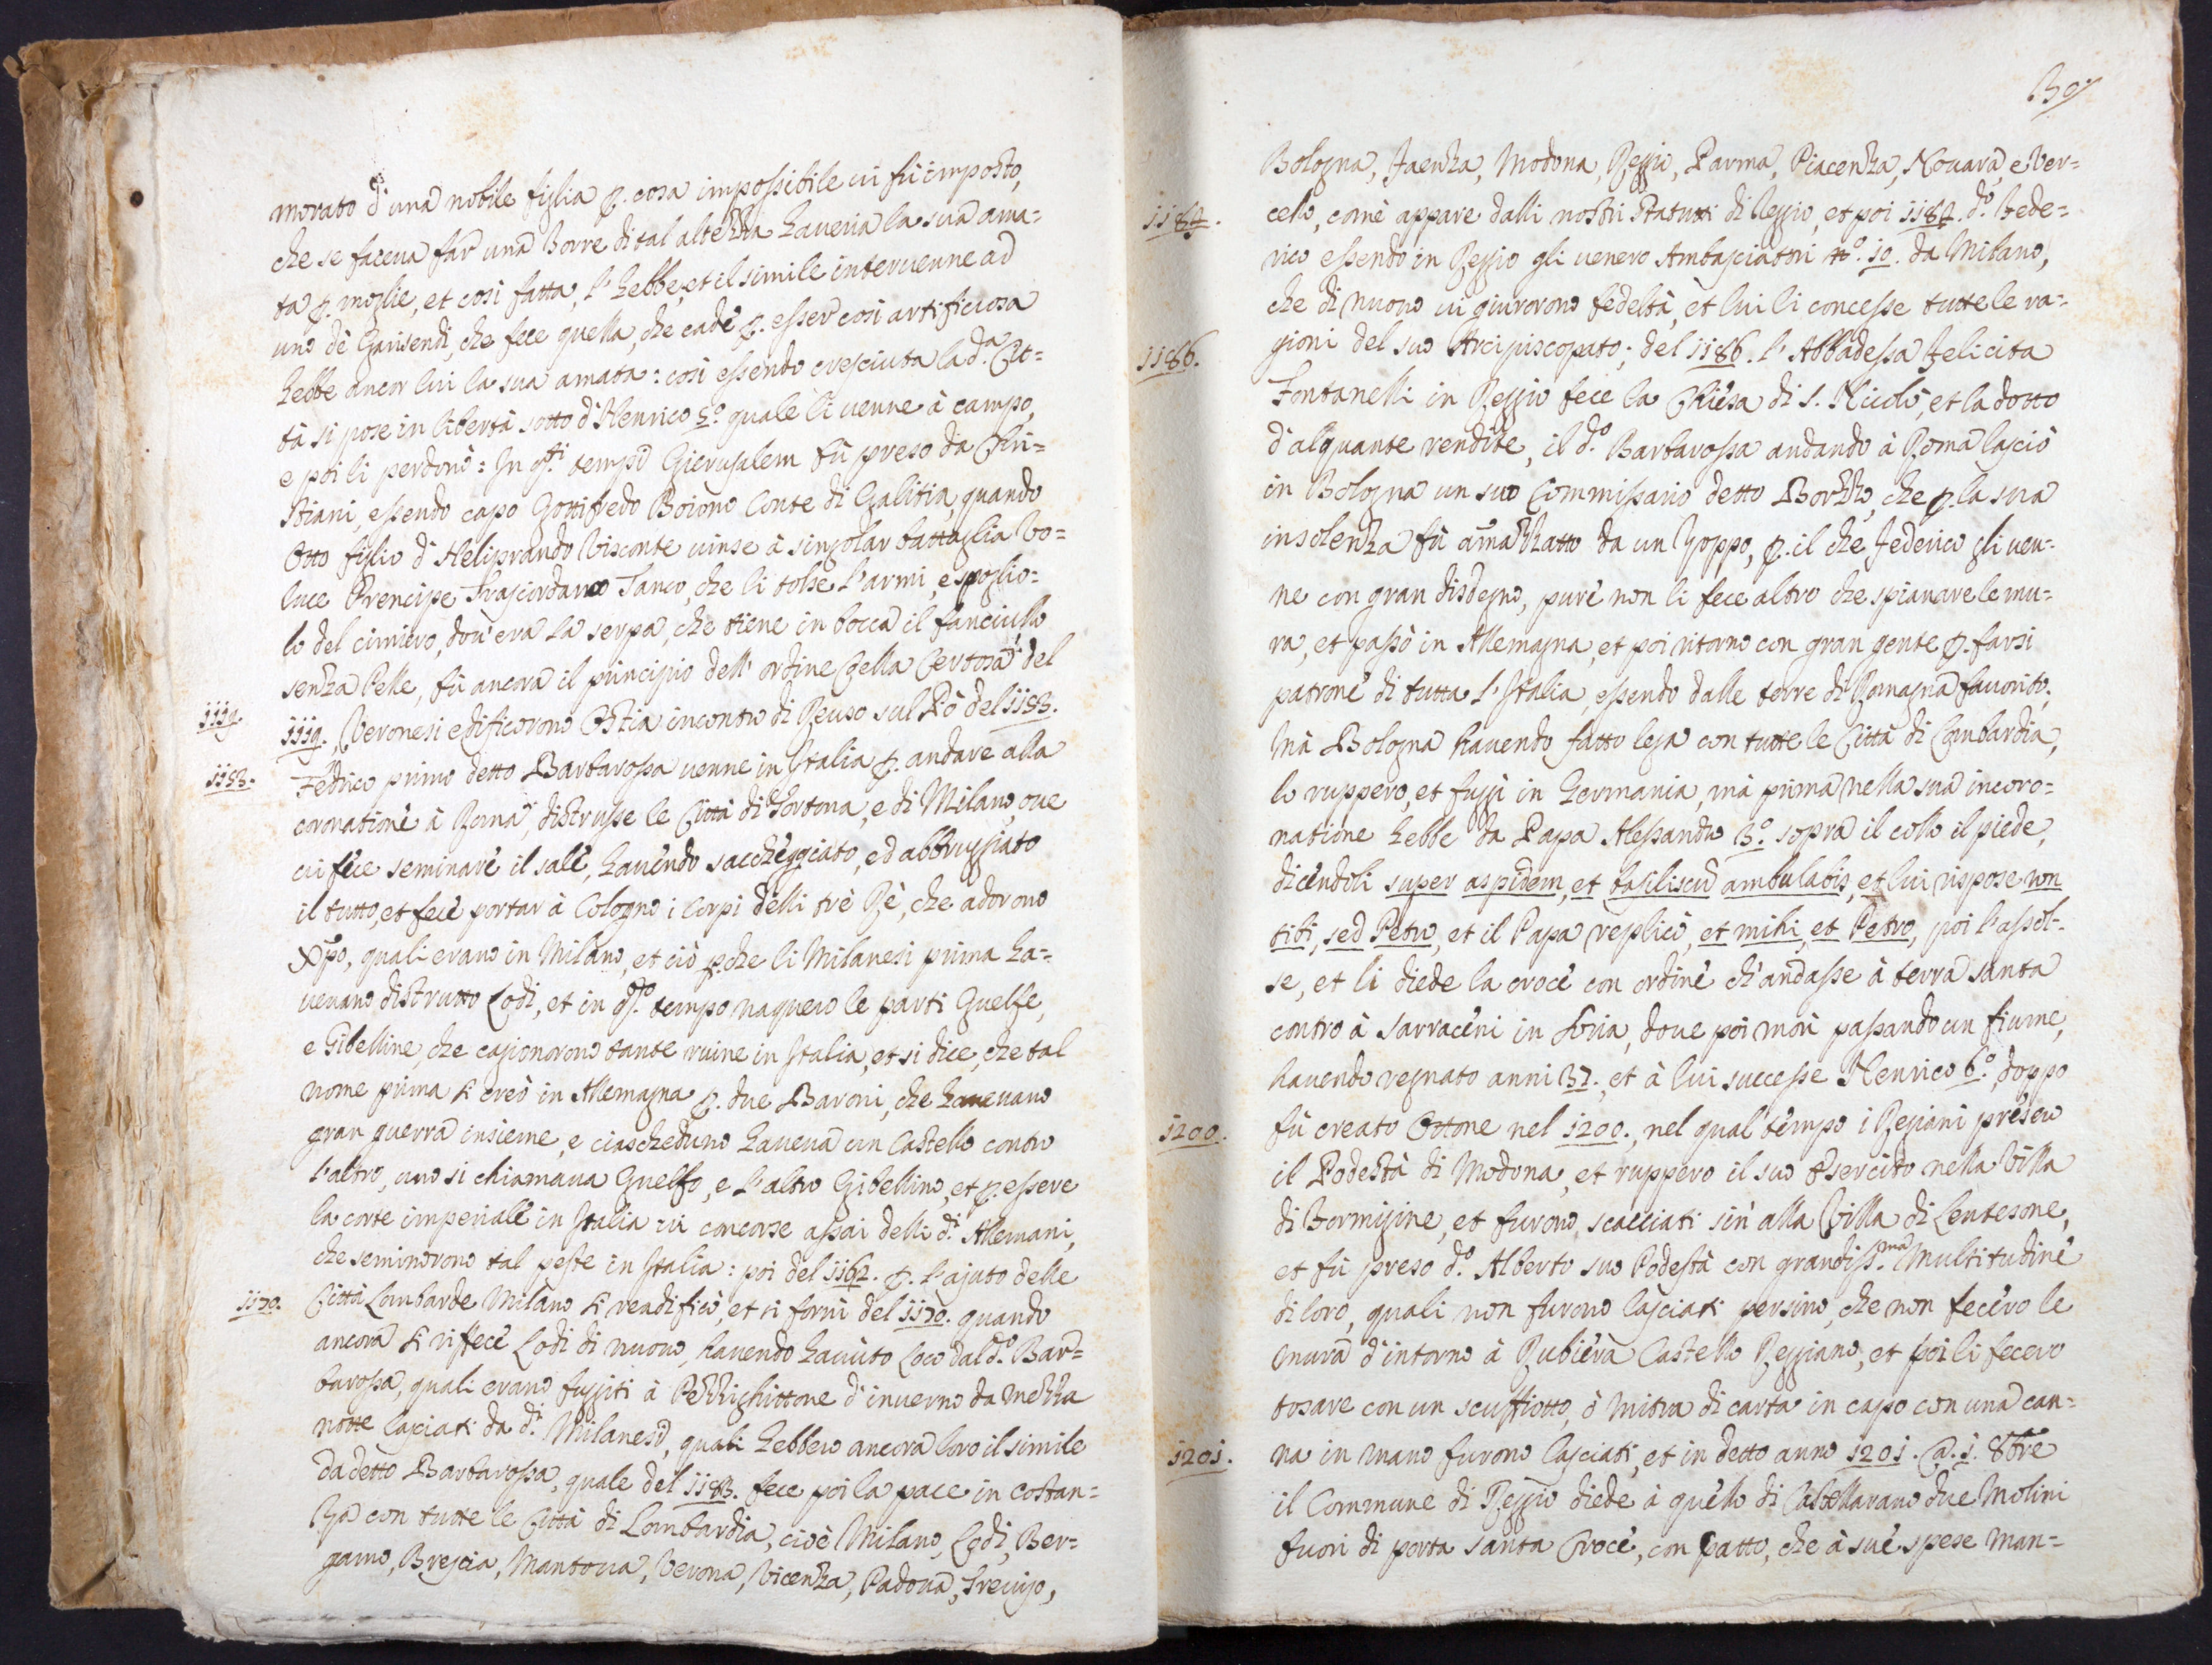 morato d'una nobile figlia p. cosa impossibile ui fù imposto,
che se faceua far una Torre di tal altezza haueria la sua ama=
ta p. moglie, et così fatta, l'hebbe, et il simile interuenne ad
uno dè Garisendi, che fece quella, che cadè p. esser così artificiosa
hebbe ancor lui la sua amata: così essendo cresciuta la d.a Cit=
tà si pose in libertà sotto d'Henrico 5.o quale li uenne à campo,
e poi li perdonò: In q.ti tempi Gierusalem fù preso da Chri=
stiani, essendo capo Gottifredo Boiono Conte di Galitia, quando
Otto figlio d'Heliprando Visconte uinse à singolar battaglia Vo=
luce Prencipe Trascordano Tanco, che li tolse l'armi, e spoglio=
lo del cimiero, dou'era la serpa, che tiene in bocca il fanciullo
senza Pelle, fù ancora il principio dell'ordine Cella Certosa del
1119.
1119. Veronesi edificorono Ostia incontro di Reuso sul Pò del 1153.
1153.
Fedrico primo detto Barbarossa uenne in Italia p. andare alla
coronatione à Roma, distrusse le Città di Tortona, e di Milano, oue
ui fece seminare il sale, hauendo saccheggiato, ed abbruggiato
il tutto, et fece portar à Cologno i Corpi delli trè Rè, che adorono
Xpo, quali erano in Milano, et ciò p.che li Milanesi prima ha=
ueuano distrutto Lodi, et in q.to tempo naquero le parti Guelfe,
e Gibelline, che cagionorono tante ruine in Italia, et si dice, che tal
nome prima si creò in Allemagna p. due Baroni, che haueuano
gran guerra insieme, e ciascheduno haueua un Castello contro
l'altro, uno si chiamaua Guelfo, e l'altro Gibellino, et p. essere
la corte imperiale in Italia ui concorse assai delli d.i Allemani,
che seminorono tal peste in Italia: poi del 1162. p. l'ajuto delle
1170.
Città Lombarde Milano si readificò, et si fornì del 1170. quando
ancora si riffece Lodi di nuouo, hauendo hauuto loco dal d.o Bar=
barossa, quali erano fuggiti à Pizzighittone d'inuerno da mezza
notte lasciati da d.i Milanesi, quali hebbero ancora loro il simile
da detto Barbarossa, quale del 1183. fece poi la pace in Costan=
za con tutte le Città di Lombardia, cioè Milano, Lodi, Ber=
gamo, Brescia, Mantoua, Verona, Vicenza, Padoua, Treuiso,
Bologna, Faenza, Modona, Reggio, Parma, Piacenza, Nouara, e Ver=
1184.
celli, come appare dalli nostri Statutti di Reggio, et poi 1184. d.o Fede=
rico essendo in Reggio gli uenero Ambasciatori n.o 10. da Milano,
che di nuouo ui giurorono fedeltà, et lui li concesse tutte le ra=
1186.
gioni del suo Arcipiscopato; del 1186. l'Abbadessa Felicita
Fontanelli in Reggio fece la Chiesa di S. Nicolò, et la dotto
d'alquante rendite, il d.o Barbarossa andando à Roma lasciò
in Bologna un suo Commissario detto Bozzo, che p. la sua
insolenza fù amazzatto da un Zoppo, p. il che Federico gli uen=
ne con gran disdegno, pure non li fece altro che spianare le mu=
ra, et passò in Allemagna, et poi ritorno con gran gente p. farsi
patrone di tutta l'Italia, essendo dalle terre di Romagna fauorito;
mà Bologna hauendo fatto lega con tutte le Città di Lombardia,
lo ruppero, et fuggì in Germania, mà prima nella sua incoro=
natione hebbe da Papa Alessandro 3.o sopra il collo il piede,
dicendoli super aspidem, et basiliscu ambulabis, et lui rispose non
tibi, sed Petro, et il Papa replicò, et mihi, et Petro, poi l'assol=
se, et li diede la croce con ordine ch'andasse à terra santa
contro à sarraceni in Soria, doue poi morì passando un fiume,
hauendo regnato anni 37. et à lui successe Henrico 6.o doppo
1200.
fù creato Ottone nel 1200. nel qual tempo i Regiani presero
il Podestà di Modona, et ruppero il suo Esercito nella Villa
di Formigine, et furono scacciati sin'alla Villa di Lentesone,
et fù preso d.o Alberto suo Podestà con grandiss.ma Multitudine
di loro, quali non furono lasciati persino, che non fecero le
mura d'intorno à Rubiera Castello Reggiano, et poi li fecero
tosare con un scuffiotto, ò mitra di carta in capo con una can=
1201.
na in mano furono lasciati, et in detto anno 1201. a. 1. 8bre
il Commune di Reggio diede à quello di Castellarano due Molini
fuori di porta santa Croce, con patto, che à sue spese man=